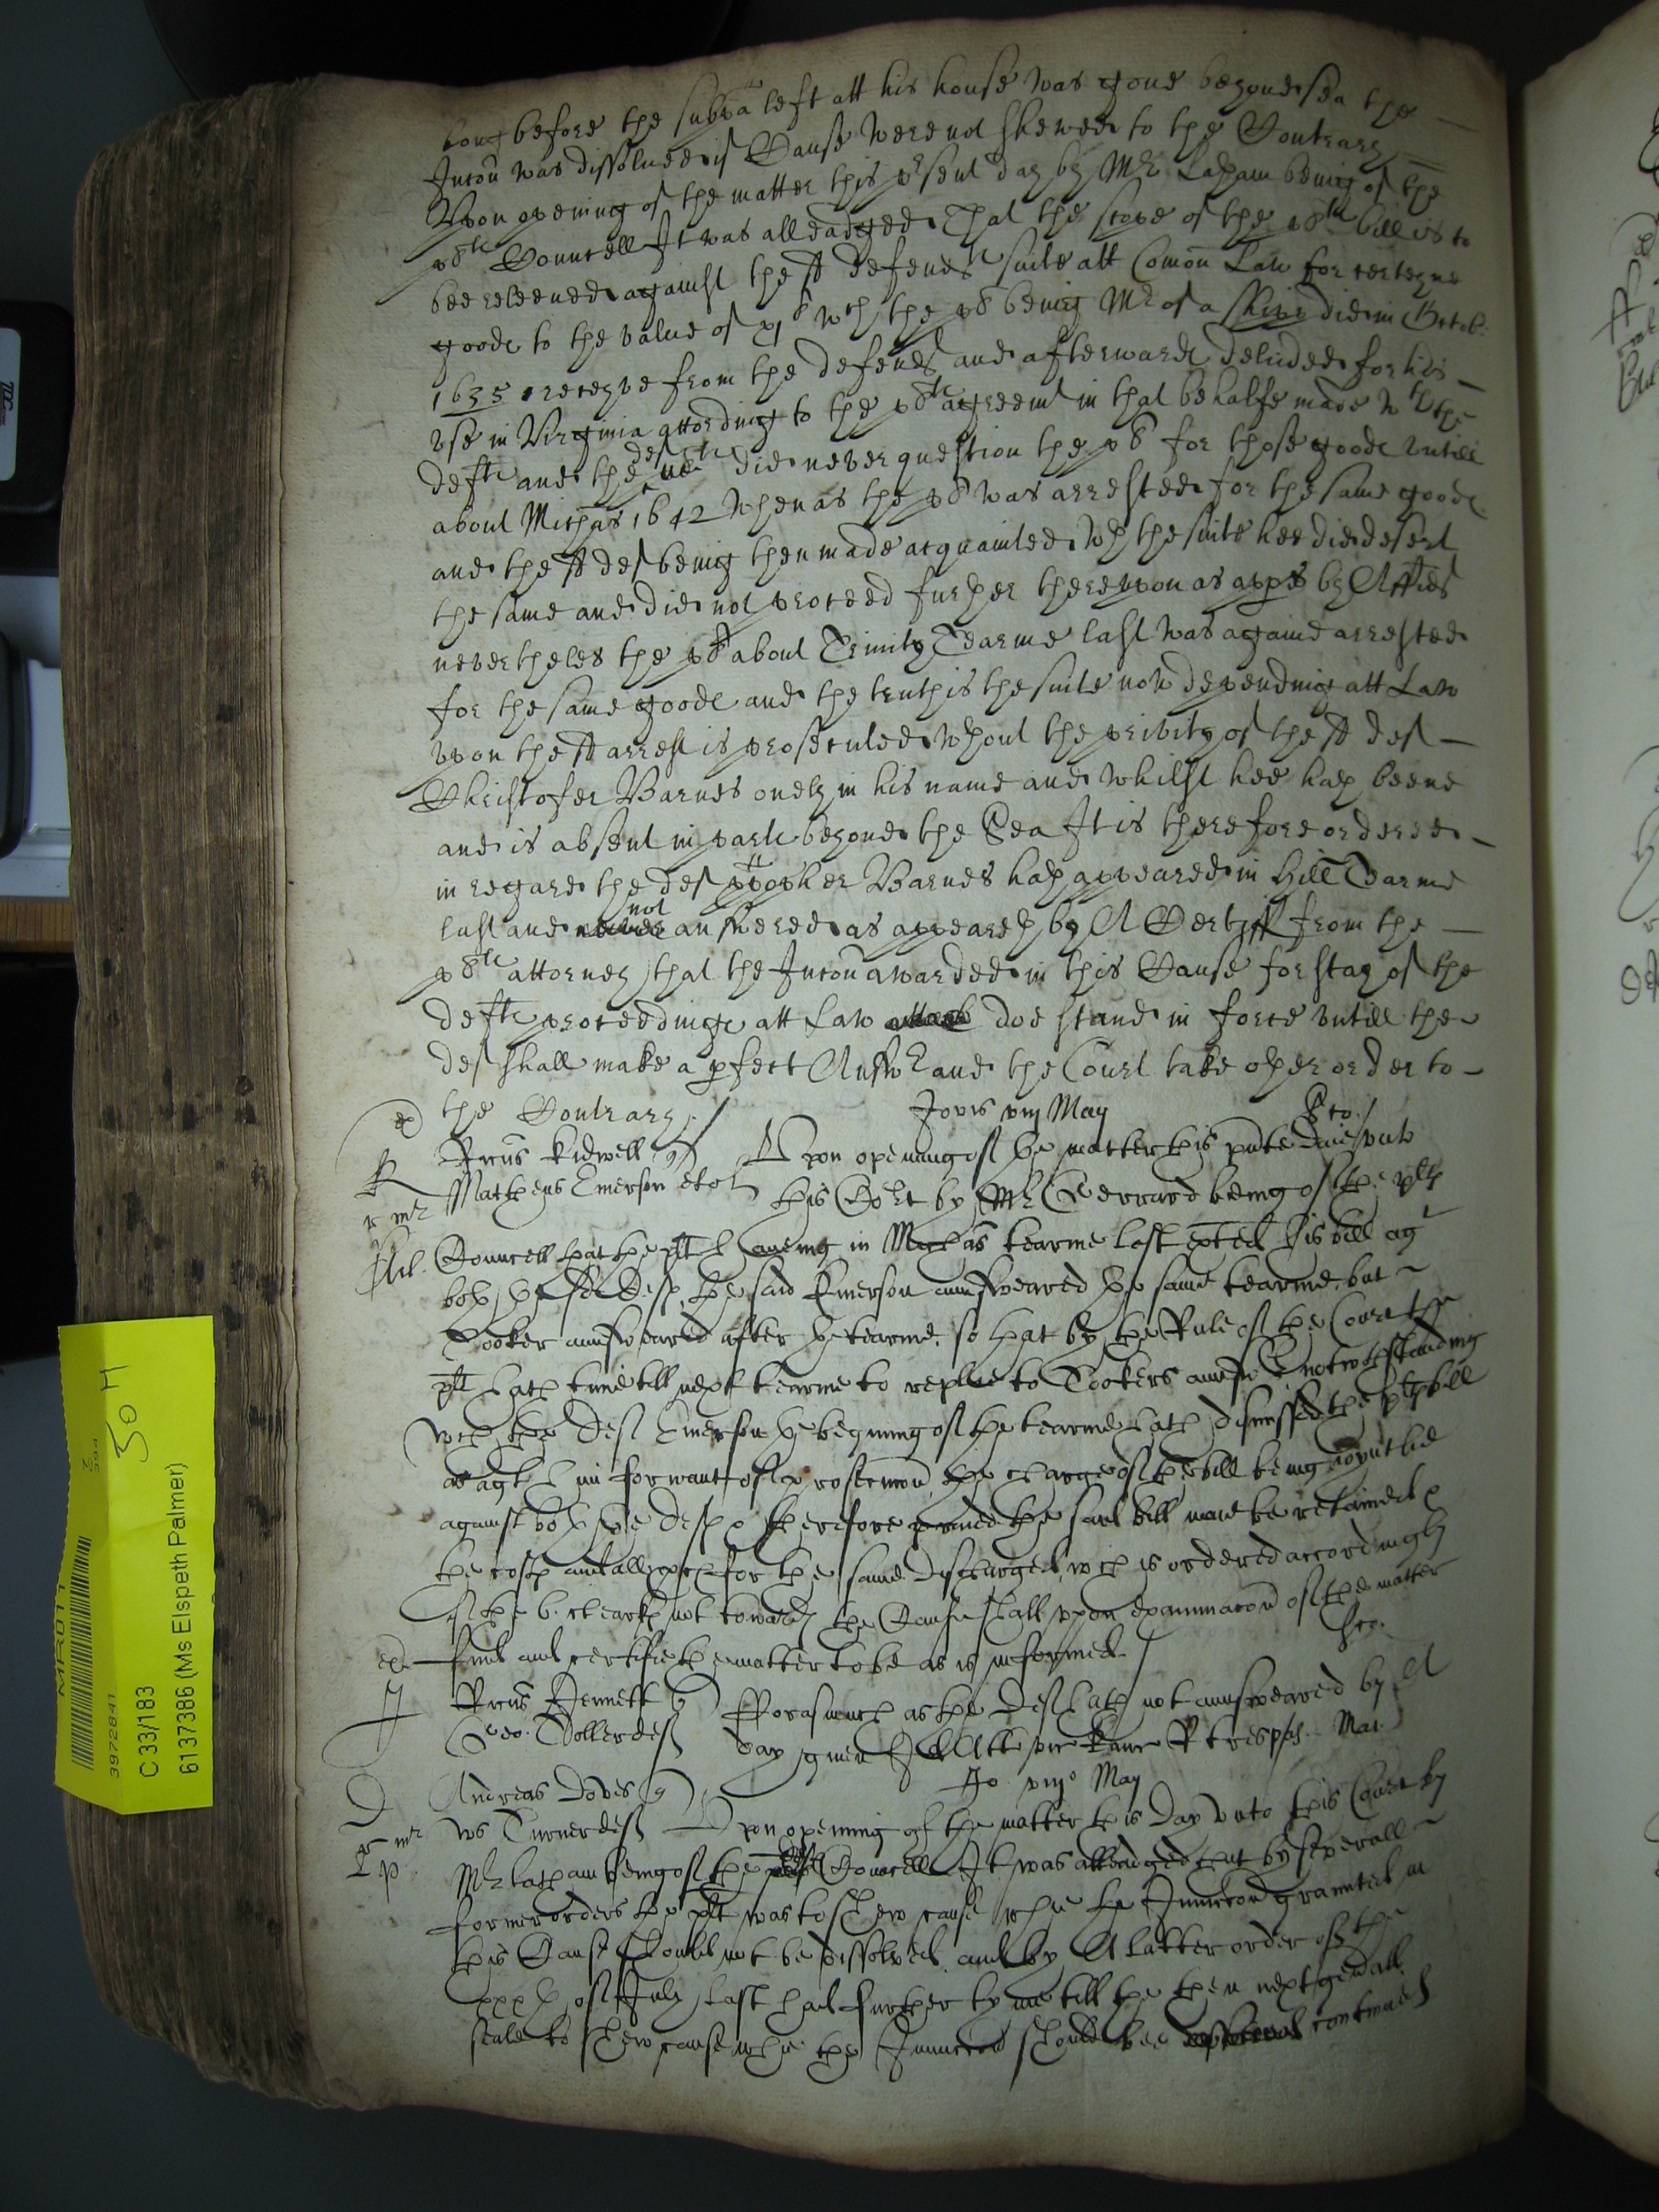 long before the subpa left att his house was gone beyond sea the
Incon was dissolued if Cause were not shewed to the Contrary
Vpon opening of the matter this psent day by Mr Lapam being of the
plts Councell It was alleadged That the scope of the plts bill is to
bee releeued against the sd defendts suite att Comon Law for certeyne
goods to the value of wch the pl being Mr of a Shipp did in Octob:
1635 receyve from the defendt and afterwards deliuded for his
vse in Virginia according to the plts agreemt in that behalfe made wth the
defts and the deft did never question the pl for those goods vntill
about Michas 1642 when as the pl was arrested for the same goods
and the sd def being then made acquainted wth the suite hee did desert
the same and did not proceed further therevpon as appes by Affid
neverthelesse the pl about Trinity Tearme last was againe arrested
for the same goods and the truth is the suite now depending att Law
vpon the sd arrest is prosecuted wthout the privity of the sd def
Christofer Barnes onely in his name and whilst hee hath beene
and is absent in parts beyond the Sea It is therefore ordered
in regard the def Xpopher Barnes hath appeared in Hill Tearme
last and not answered as appeareth by A Certiff from the
plts attorney that the Incon awarded in this Cause for stay of the
defts proceedings att Law doe stand in force vntill the
def shall make a pfect Answr and the Court take other order to
the Contrary
Jovis viij May
Frcus Kidwell q
Vpon opening of the matter this pnte daie vnto
Matheus Emerson et al
this Court by Mr Gerrard being of the plts
Councell that the plt haueing in Michas tearme last exted his bill agt
both the sd defts the said Emerson aunsweared the same tearme, but
Tooker aunsweared after the tearme, so that by the Rule of the Court the
plt hath time till next tearme to replie to Tookers aunswr notwthstanding
wch the def Emerson the begining of the tearme hath dismissed the plts bill
as agt him for want of prosecucon the charge of the bill being ioyntlie
against both the defts therefore praied the said bill maie be reteined
the costs and all pces for the same discharged wch is ordered accordingly
if the 6. clearks not towards the Cause shall vpon examinacon of the matter
find and certifie the matter to be as is informed
Frcus Jennett q
Forasmuch as the def hath not aunsweared by A
Geo: Toller def
day giuen
Andreas Doves q
Jo viijo May
Ws Turner def
Vpon opening of the matter this day vnto this Court by
Mr Lapam being of the Councell It was alleadged that by severall
former orders the plt was to shew cause why the Iniunccon graunted in
this Cause should not be dissolved, and by A latter order of the
xxxth of July last had further tyme till the then next generall
seale to shew cause why the Iniunccon should bee continued
MR011
3972841
2
394
50 H
C 33/183
6137386 (Ms Elspeth Palmer)